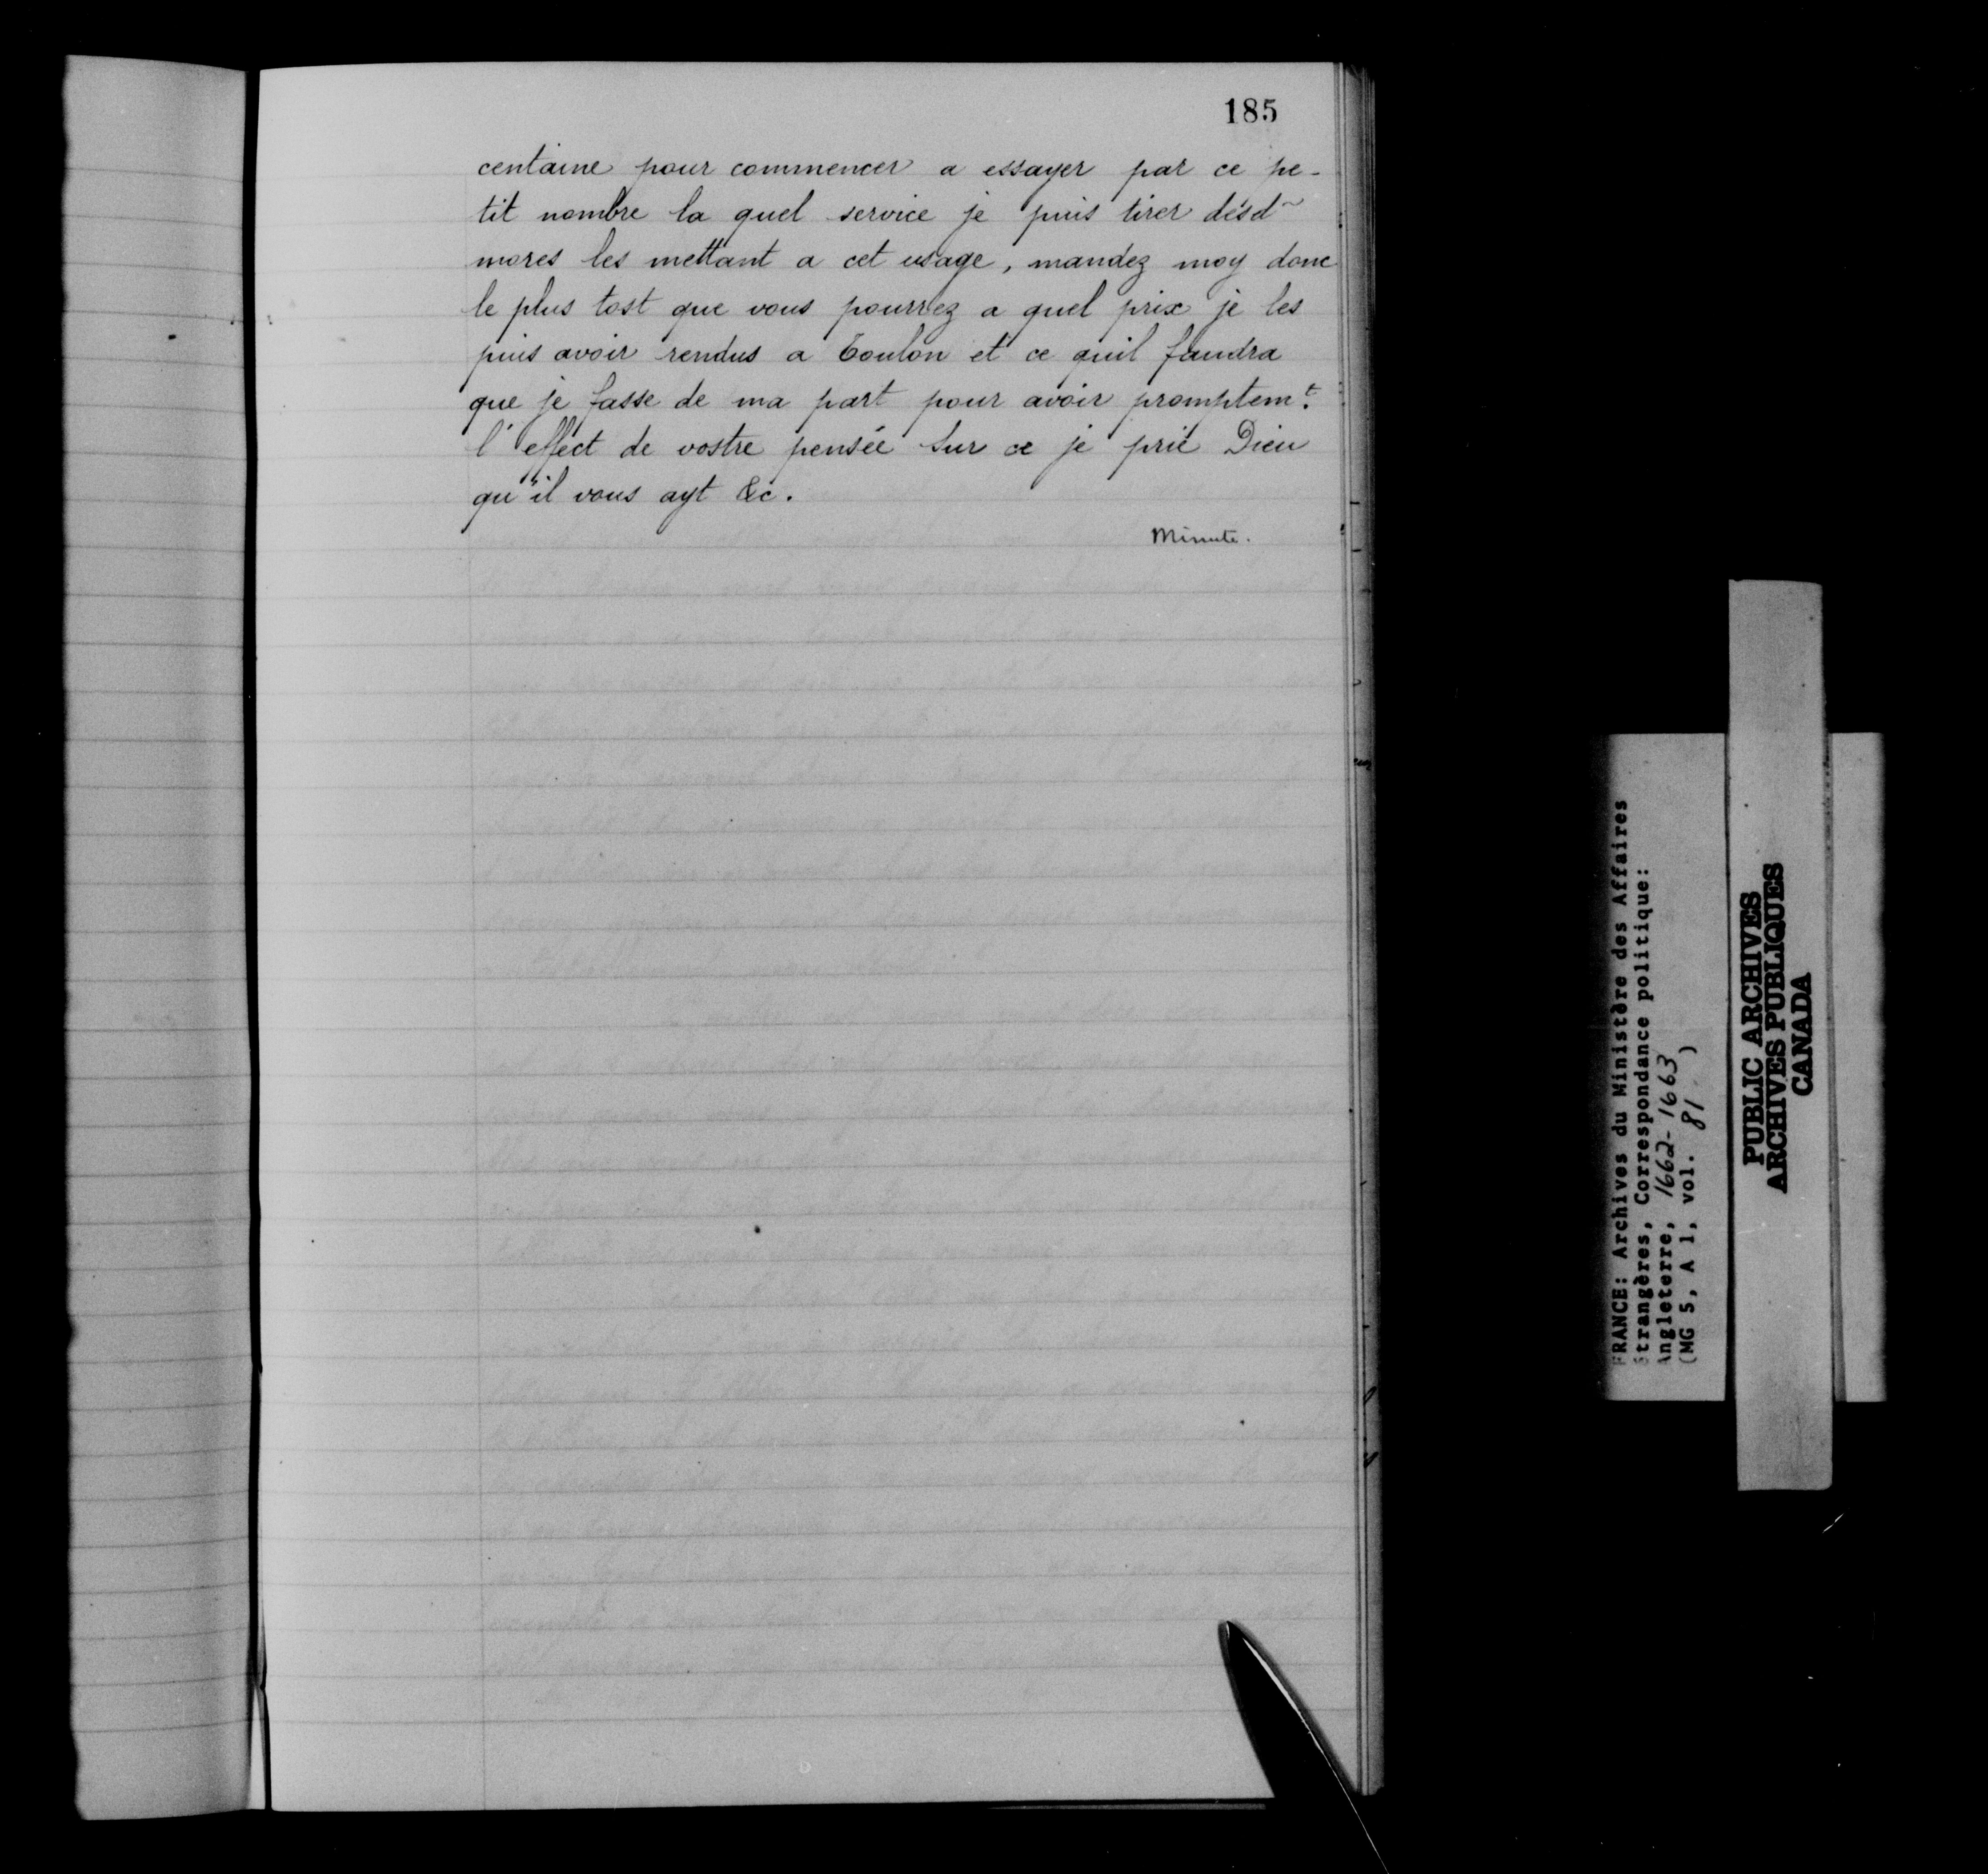 185
centaine pour commencer a essayer par ce pe-
tit nombre la quel service je puis tirer desd~
mores les mettant a cet usage, mandez moy donc
le plus tost que vous pourrez a quel prix je les
puis avoir rendus a Toulon et ce quil faudra
que je fasse de ma part pour avoir promptemt.
l'effect de vostre pensée sur ce je prie Dieu
qu'il vous ayt &c.
Minute.
FRANCE: Archives du Ministère des Affaires
Étrangères, Correspondance politique:
Angleterre, 1662-1663
(MG 5, A 1, vol. 81 )
PUBLIC ARCHIVES
ARCHIVES PUBLIQUES
CANADA